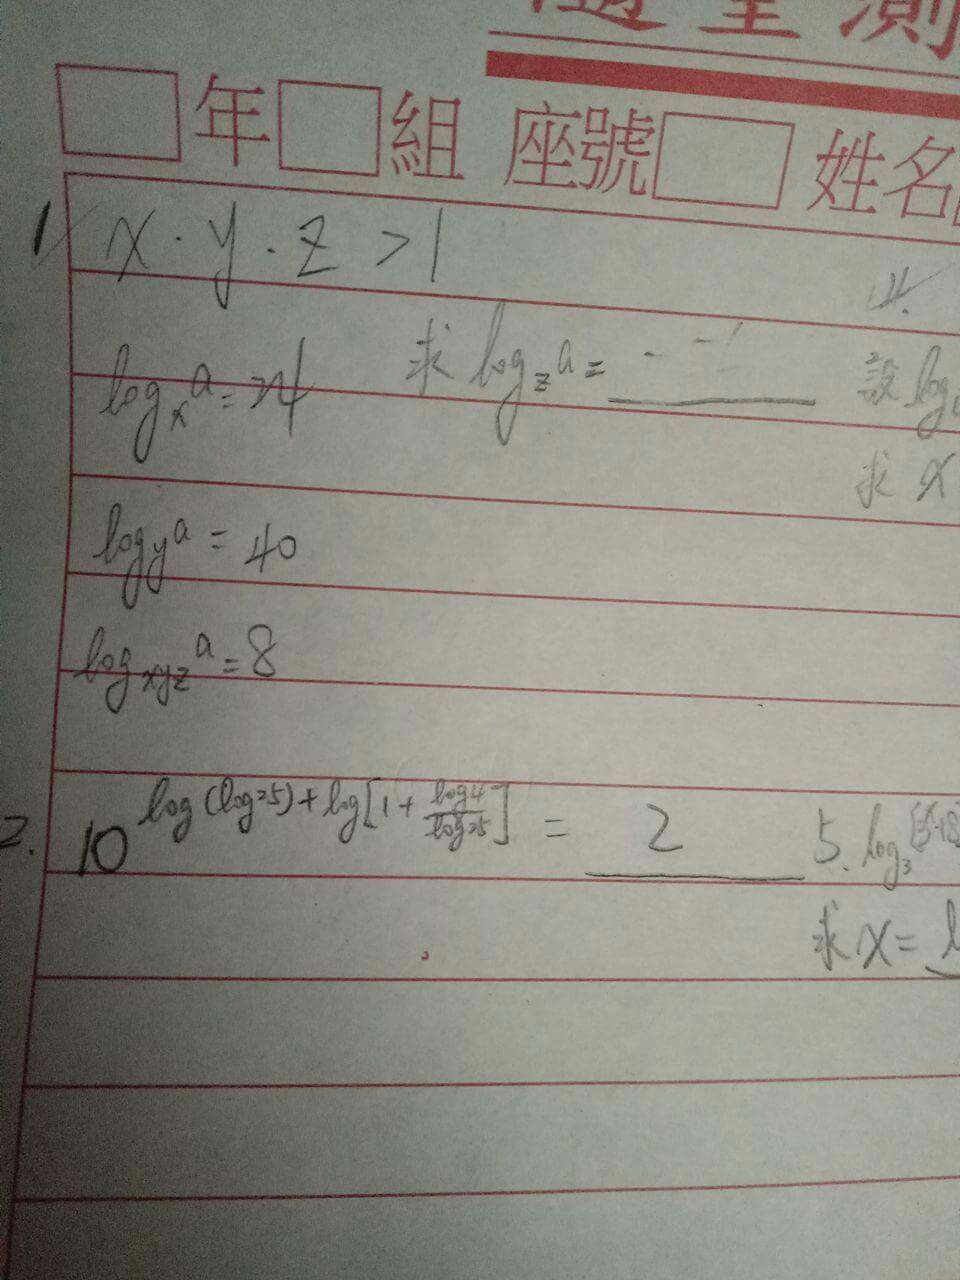 隨堂測
年 組 座號 姓名
1. x·y·z>1
log_x a = 24 求 log_z a =
設 log
求 x
log_y a = 40
log_xyz a = 8
2. 10^(log(log25)+log[1+log4/log25]) = 2
5. log_3
求 x=